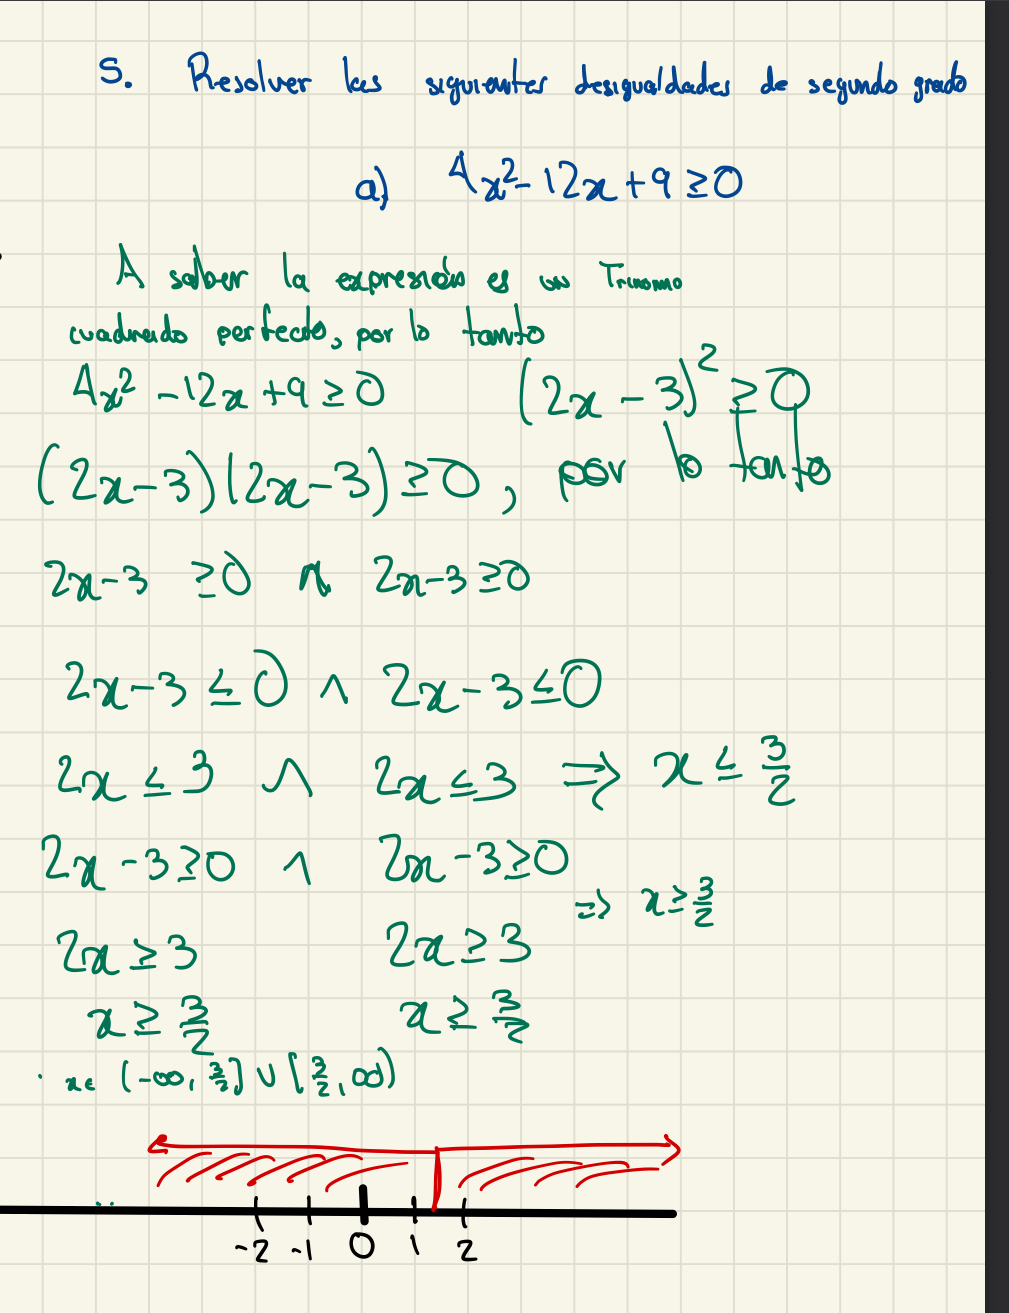 5. Resolver las siguientes desigualdades de segundo grado
a) 4x²-12x+9≥0
A saber la expresión es un Trinomio
cuadrado perfecto, por lo tanto
4x²-12x+9≥0 (2x-3)²≥0
(2x-3)(2x-3)≥0, por lo tanto
2x-3 ≥0 ∧ 2x-3≥0
2x-3≤0 ∧ 2x-3≤0
2x≤3 ∧ 2x≤3 ⇒ x≤3/2
2x-3≥0 ∧ 2x-3≥0
⇒ x≥3/2
2x≥3 2x≥3
x≥3/2 x≥3/2
x∈ (-∞,3/2] ∪ [3/2,∞)
-2 -1 0 1 2